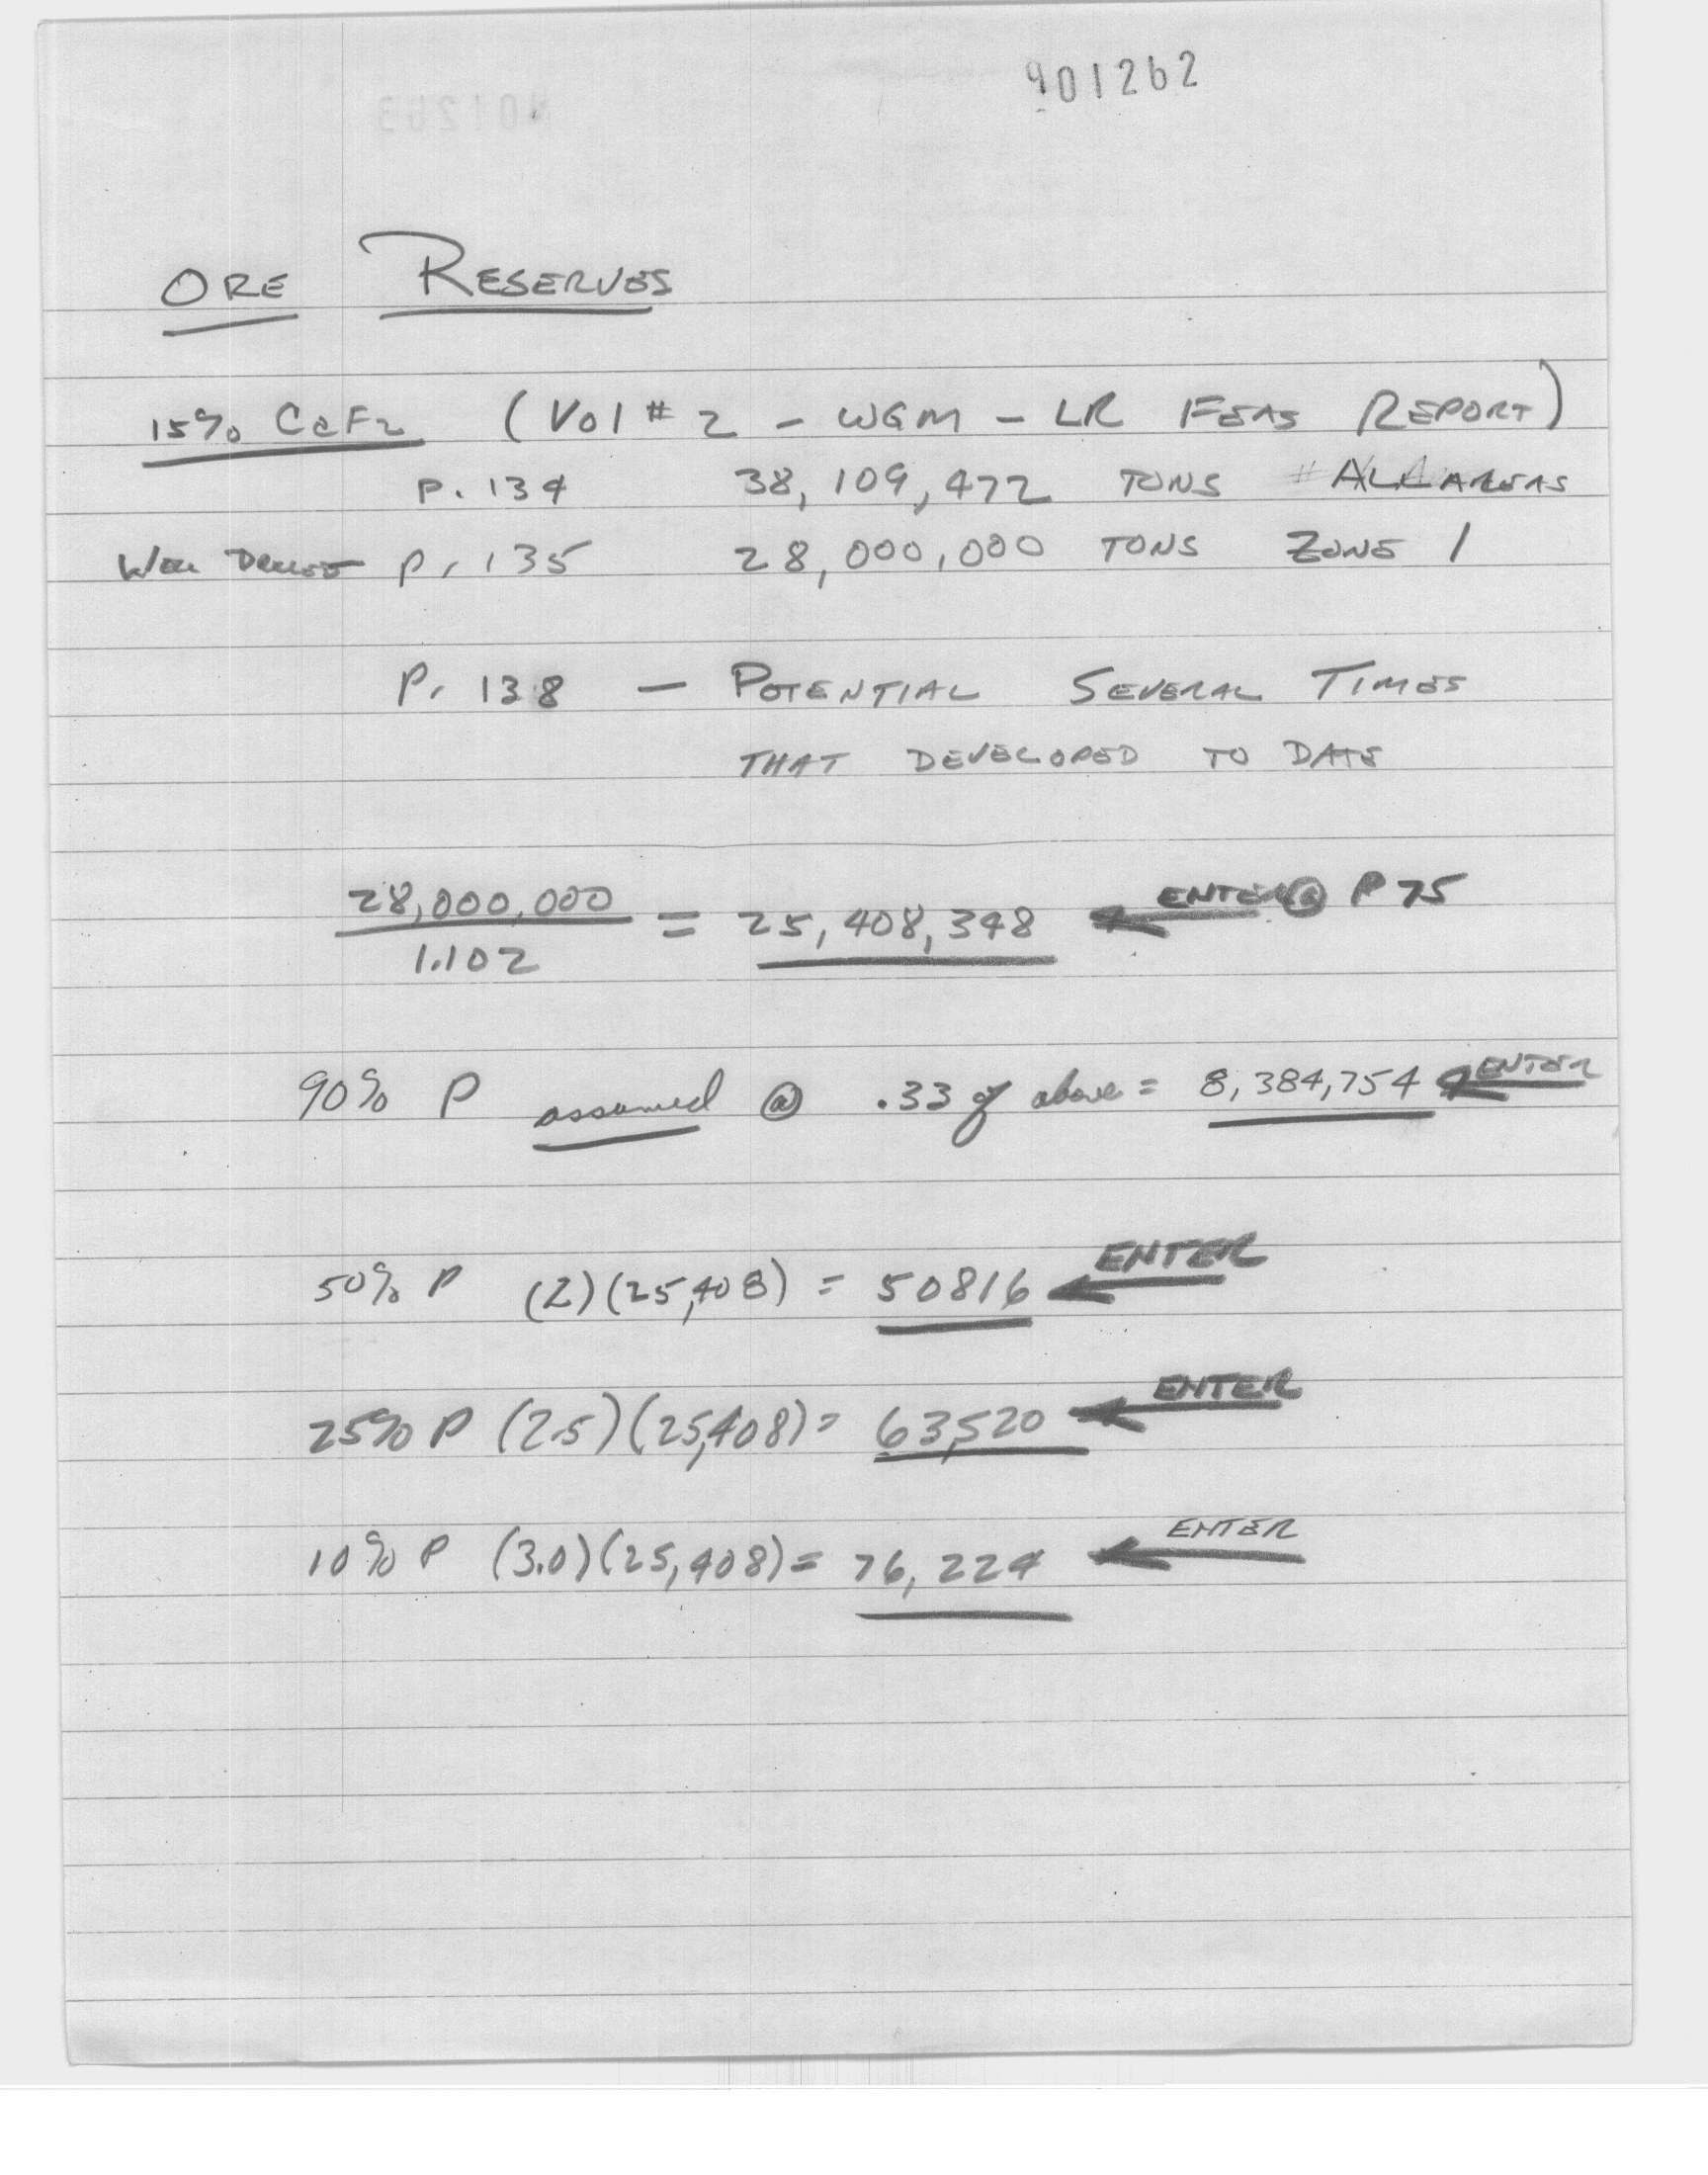 901262
ORE RESERVES
15% CaF2 (Vol # 2 - WGM - LR FEAS REPORT)
p. 134 38,109,472 TONS ALL AREAS
p. 135 28,000,000 TONS ZONE 1
P. 138 — POTENTIAL SEVERAL TIMES
THAT DEVELOPED TO DATE
28,000,000 / 1.102 = 25,408,348 ← ENTER @ P 75
90% P assumed @ .33 of above = 8,384,754 ← ENTER
50% P (2)(25,408) = 50816 ← ENTER
25% P (2.5)(25,408) = 63,520 ← ENTER
10% P (3.0)(25,408) = 76,224 ← ENTER